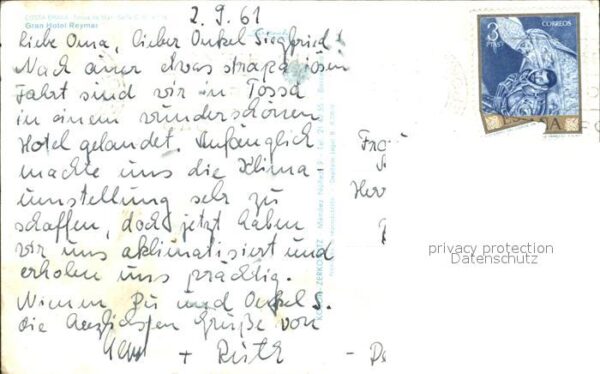 COSTA BRAVA
Gran Hotel Reymar
2.9.61
Liebe Oma, lieber Onkel Siegfried!
Nach einer etwas strapaziösen
Fahrt sind wir in Tossa
in einem wunderschönen
Hotel gelandet. Anfänglich
machte uns die Klima
umstellung sehr zu
schaffen, doch jetzt haben
wir uns aklimatisiert und
erholen uns prächtig.
Nimm Du und Onkel S.
die herzlichsten Grüße von
+ Ruth
3
PTAS
CORREOS
ESPAÑA
Herr
privacy protection
Datenschutz